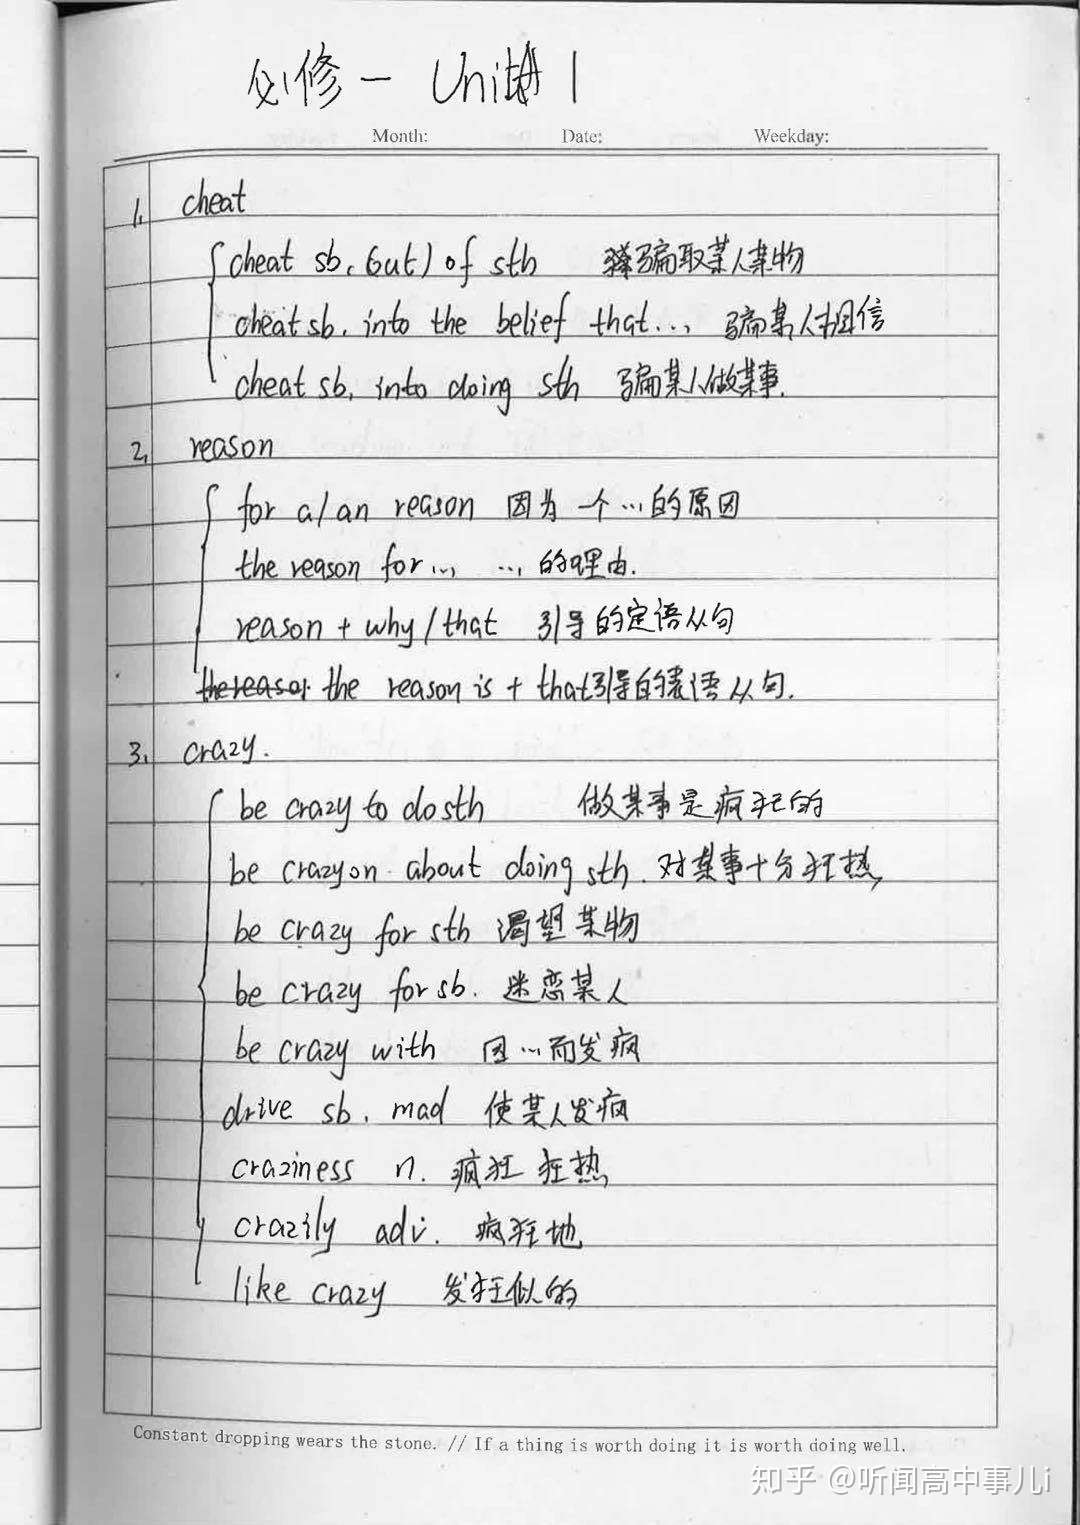 必修一 Unit 1
Month: Date: Weekday:
1. cheat
cheat sb. (out) of sth 骗取某人某物
cheat sb. into the belief that... 骗某人相信
cheat sb. into doing sth 骗某人做某事.
2. reason
for a/an reason 因为一个...的原因
the reason for... ...的理由.
reason + why/that 引导的定语从句
the reason is + that引导的表语从句.
3. crazy.
be crazy to do sth 做某事是疯狂的
be crazy on about doing sth. 对某事十分狂热
be crazy for sth 渴望某物
be crazy for sb. 迷恋某人
be crazy with 因...而发疯
drive sb. mad 使某人发疯
craziness n. 疯狂 狂热
crazily adv. 疯狂地
like crazy 发狂似的
Constant dropping wears the stone. // If a thing is worth doing it is worth doing well.
知乎 @听闻高中事儿i